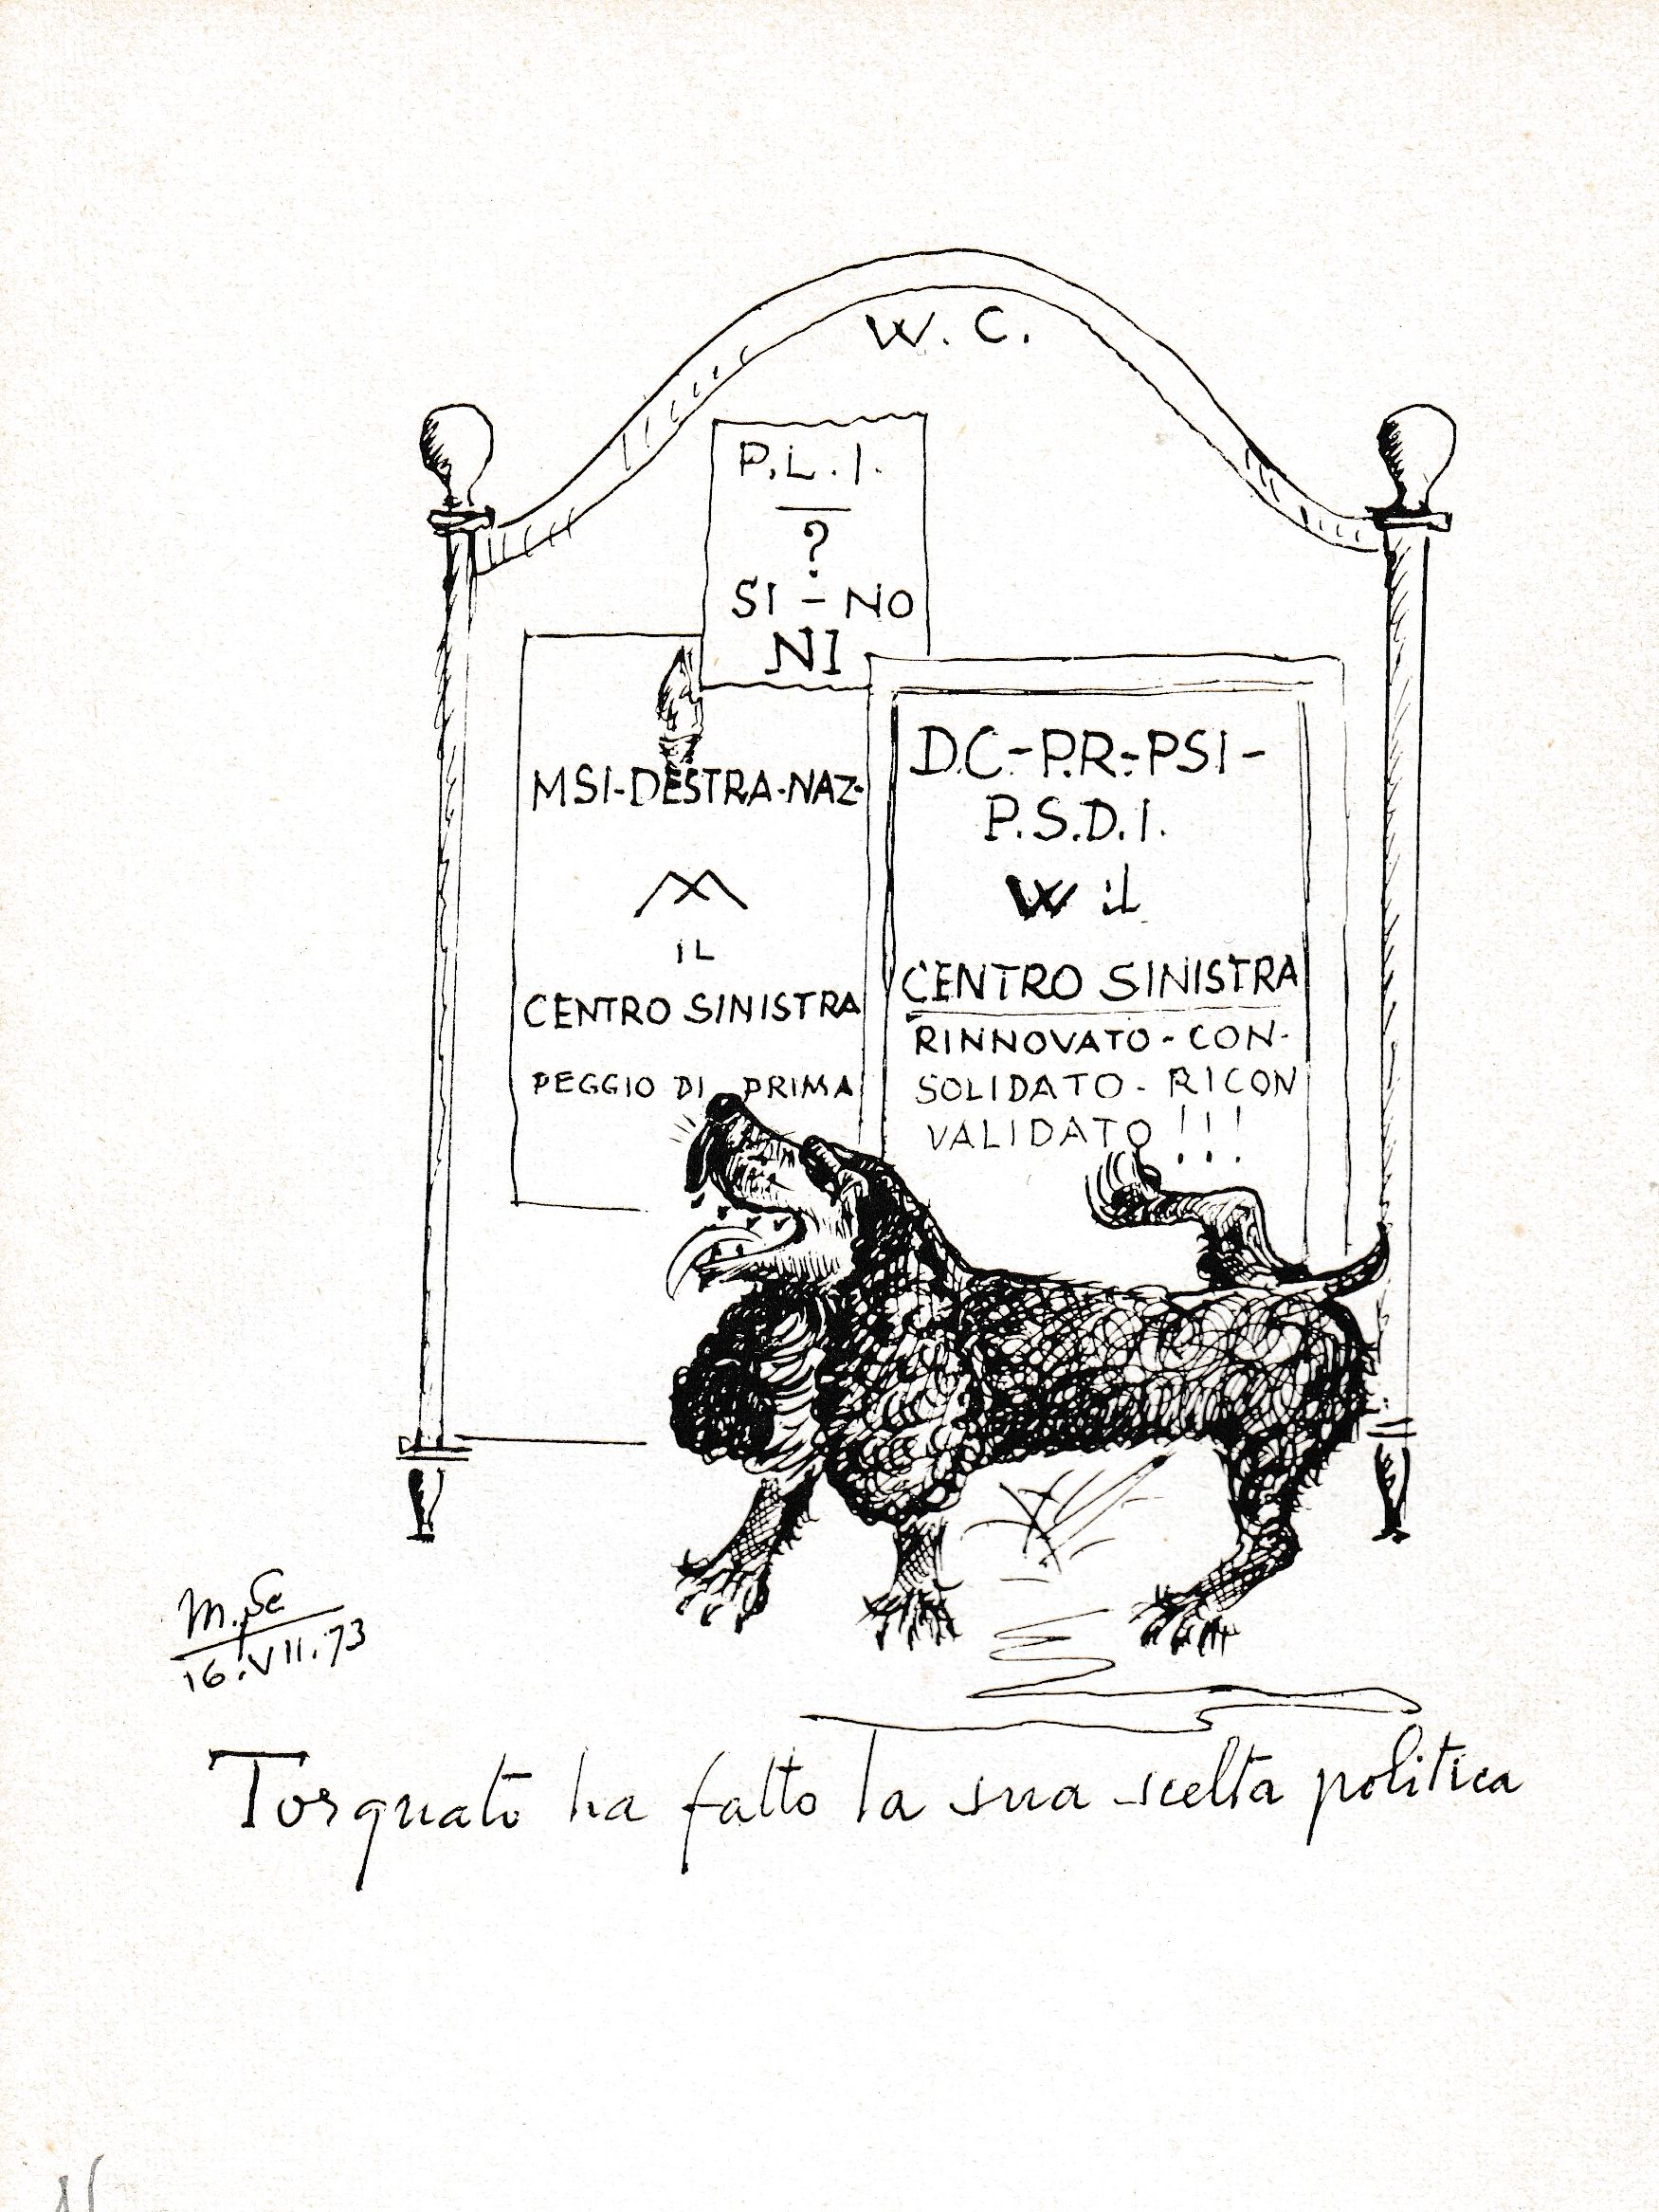 W. C.
P.L.I.
?
SI - NO
NI
MSI-DESTRA-NAZ-
IL
CENTRO SINISTRA
PEGGIO DI PRIMA
D.C-P.R-PSI-
P.S.D.I.
W il
CENTRO SINISTRA
RINNOVATO - CON-
SOLIDATO - RICON
VALIDATO !!!
16.VII.73
Torquato ha fatto la sua scelta politica